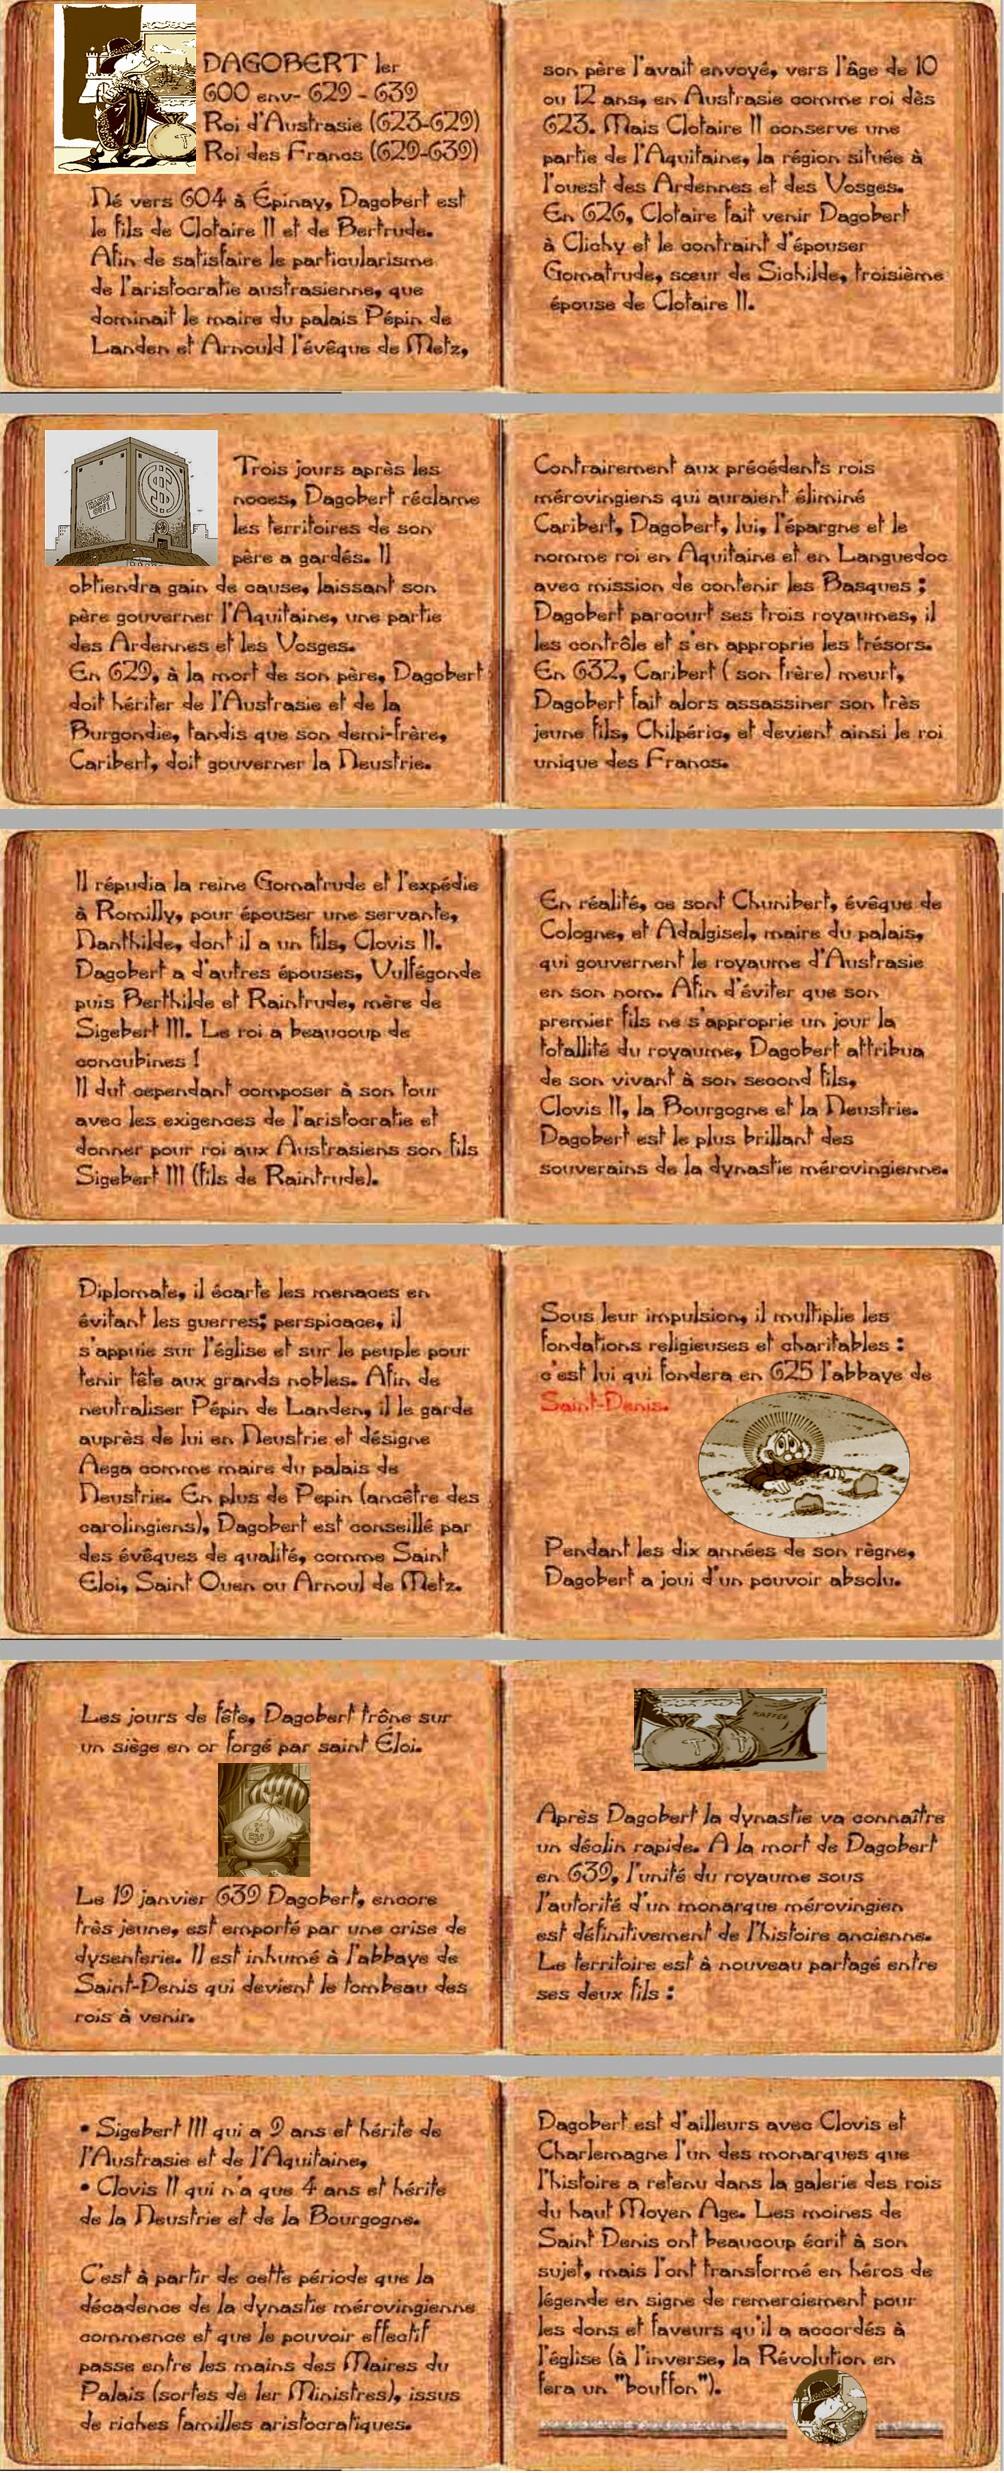 DAGOBERT 1er
600 env- 629 - 639
Roi d'Austrasie (623-629)
Roi des Francs (629-639)
Né vers 604 à Épinay, Dagobert est
le fils de Clotaire II et de Bertrude.
Afin de satisfaire le particularisme
de l'aristocratie austrasienne, que
dominait le maire du palais Pépin de
Landen et Arnould l'évêque de Metz,
son père l'avait envoyé, vers l'âge de 10
ou 12 ans, en Austrasie comme roi dès
623. Mais Clotaire II conserve une
partie de l'Aquitaine, la région située à
l'ouest des Ardennes et des Vosges.
En 626, Clotaire fait venir Dagobert
à Clichy et le contraint d'épouser
Gomatrude, sœur de Sichilde, troisième
épouse de Clotaire II.
Trois jours après les
noces, Dagobert réclame
les territoires de son
père a gardés. Il
obtiendra gain de cause, laissant son
père gouverner l'Aquitaine, une partie
des Ardennes et les Vosges.
En 629, à la mort de son père, Dagobert
doit hériter de l'Austrasie et de la
Burgondie, tandis que son demi-frère,
Caribert, doit gouverner la Neustrie.
Contrairement aux précédents rois
mérovingiens qui auraient éliminé
Caribert, Dagobert, lui, l'épargne et le
nomme roi en Aquitaine et en Languedoc
avec mission de contenir les Basques ;
Dagobert parcourt ses trois royaumes, il
les contrôle et s'en approprie les trésors.
En 632, Caribert ( son frère) meurt,
Dagobert fait alors assassiner son très
jeune fils, Chilpéric, et devient ainsi le roi
unique des Francs.
Il répudia la reine Gomatrude et l'expédie
à Romilly, pour épouser une servante,
Nanthilde, dont il a un fils, Clovis II.
Dagobert a d'autres épouses, Vulfégonde
puis Berthilde et Raintrude, mère de
Sigebert III. Le roi a beaucoup de
concubines !
Il dut cependant composer à son tour
avec les exigences de l'aristocratie et
donner pour roi aux Austrasiens son fils
Sigebert III (fils de Raintrude).
En réalité, ce sont Chunibert, évêque de
Cologne, et Adalgisel, maire du palais,
qui gouvernent le royaume d'Austrasie
en son nom. Afin d'éviter que son
premier fils ne s'approprie un jour la
totallité du royaume, Dagobert attribua
de son vivant à son second fils,
Clovis II, la Bourgogne et la Neustrie.
Dagobert est le plus brillant des
souverains de la dynastie mérovingienne.
Diplomate, il écarte les menaces en
évitant les guerres; perspicace, il
s'appuie sur l'église et sur le peuple pour
tenir tête aux grands nobles. Afin de
neutraliser Pépin de Landen, il le garde
auprès de lui en Neustrie et désigne
Aega comme maire du palais de
Neustrie. En plus de Pepin (ancêtre des
carolingiens), Dagobert est conseillé par
des évêques de qualité, comme Saint
Eloi, Saint Ouen ou Arnoul de Metz.
Sous leur impulsion, il multiplie les
fondations religieuses et charitables :
c'est lui qui fondera en 625 l'abbaye de
Saint-Denis.
Pendant les dix années de son règne,
Dagobert a joui d'un pouvoir absolu.
Les jours de fête, Dagobert trône sur
un siège en or forgé par saint Éloi.
Le 19 janvier 639 Dagobert, encore
très jeune, est emporté par une crise de
dysenterie. Il est inhumé à l'abbaye de
Saint-Denis qui devient le tombeau des
rois à venir.
KAFFEE
T
T
Après Dagobert la dynastie va connaître
un déclin rapide. A la mort de Dagobert
en 639, l'unité du royaume sous
l'autorité d'un monarque mérovingien
est définitivement de l'histoire ancienne.
Le territoire est à nouveau partagé entre
ses deux fils :
• Sigebert III qui a 9 ans et hérite de
l'Austrasie et de l'Aquitaine,
• Clovis II qui n'a que 4 ans et hérite
de la Neustrie et de la Bourgogne.
C'est à partir de cette période que la
décadence de la dynastie mérovingienne
commence et que le pouvoir effectif
passe entre les mains des Maires du
Palais (sortes de 1er Ministres), issus
de riches familles aristocratiques.
Dagobert est d'ailleurs avec Clovis et
Charlemagne l'un des monarques que
l'histoire a retenu dans la galerie des rois
du haut Moyen Age. Les moines de
Saint Denis ont beaucoup écrit à son
sujet, mais l'ont transformé en héros de
légende en signe de remerciement pour
les dons et faveurs qu'il a accordés à
l'église (à l'inverse, la Révolution en
fera un "bouffon").